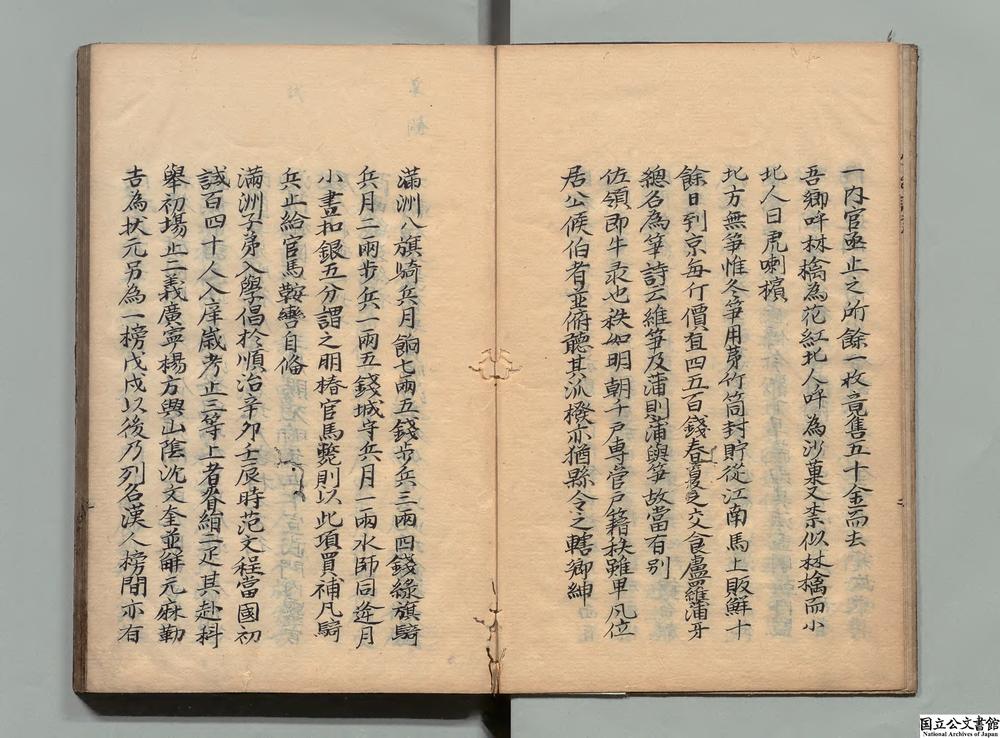 一内官亟止之所餘一枚竟售五十金而去
吾鄉呼林檎為花紅北人呼為沙菓又柰似林檎而小
北人曰虎喇檳
北方無笋惟冬笋用茅竹筒封貯從江南馬上販鮮十
餘日到京每斤價有四五百錢春夏之交食盧羅蒲牙
總名為筆詩云維笋及蒲則蒲與笋故當有別
佐領即牛彔也秩如明朝千戶專管戶籍秩雖卑凡位
居公侯伯者並俯聽其派撥亦猶縣令之轄卿紳
滿洲八旗騎兵月餉七兩五錢步兵三兩四錢綠旗騎
兵月二兩步兵一兩五錢城守兵月一兩水師同逄月
小盡扣銀五分謂之朋樁官馬斃則以此項買補凡騎
兵止給官馬鞍轡自俻
滿洲子弟入學倡於順治辛卯壬辰時范文程當國初
試百四十人入庠歲考止三等上者賞絹二疋其赴科
舉初場止二義廣寧楊方興山陰沈文奎並解元麻勒
吉為狀元另為一榜戊戌以後乃列名漢人榜間亦有
国立公文書館
National Archives of Japan